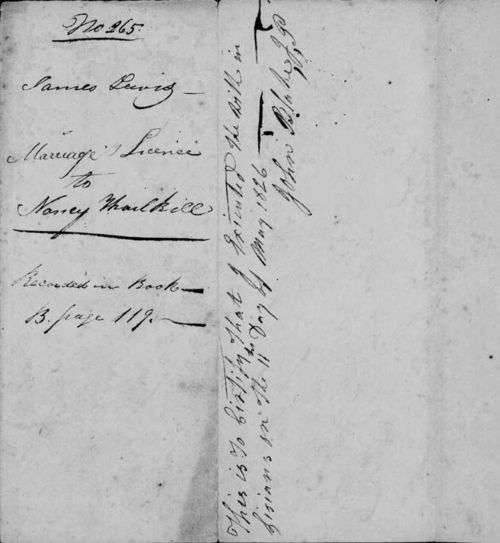 No 265.
James Lewis
Marriage Licence
to
Nancy Thrailkill
Recorded in Book
B. page 119.
This is to Certify that I Executed the with in
on the 11 Day of May 1826
John Blake J P